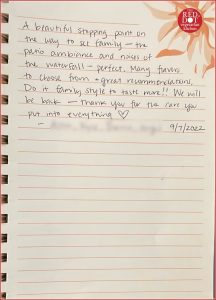 RED
BOY
A beautiful stopping point on
the way to see family – the
patio ambiance and noises of
the waterfall – perfect. Many flavors
to choose from + great recommendations.
Do it family style to taste more!! We will
be back – Thank you for the care you
put into everything ♡
9/7/2022